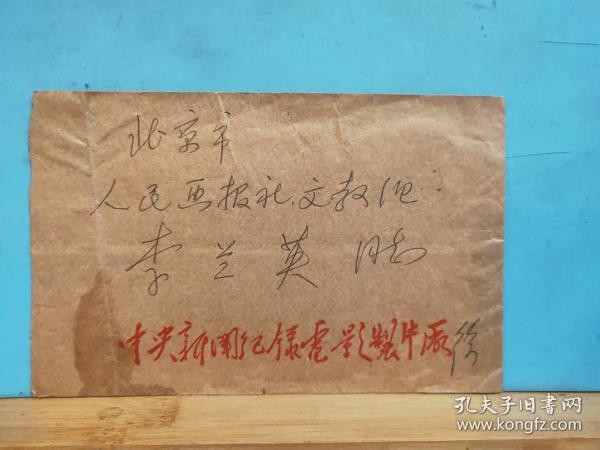 北京市
人民画报社文教组
李兰英 同志
中央新闻纪录电影製片厰 徐
孔夫子旧书网
www.kongfz.com